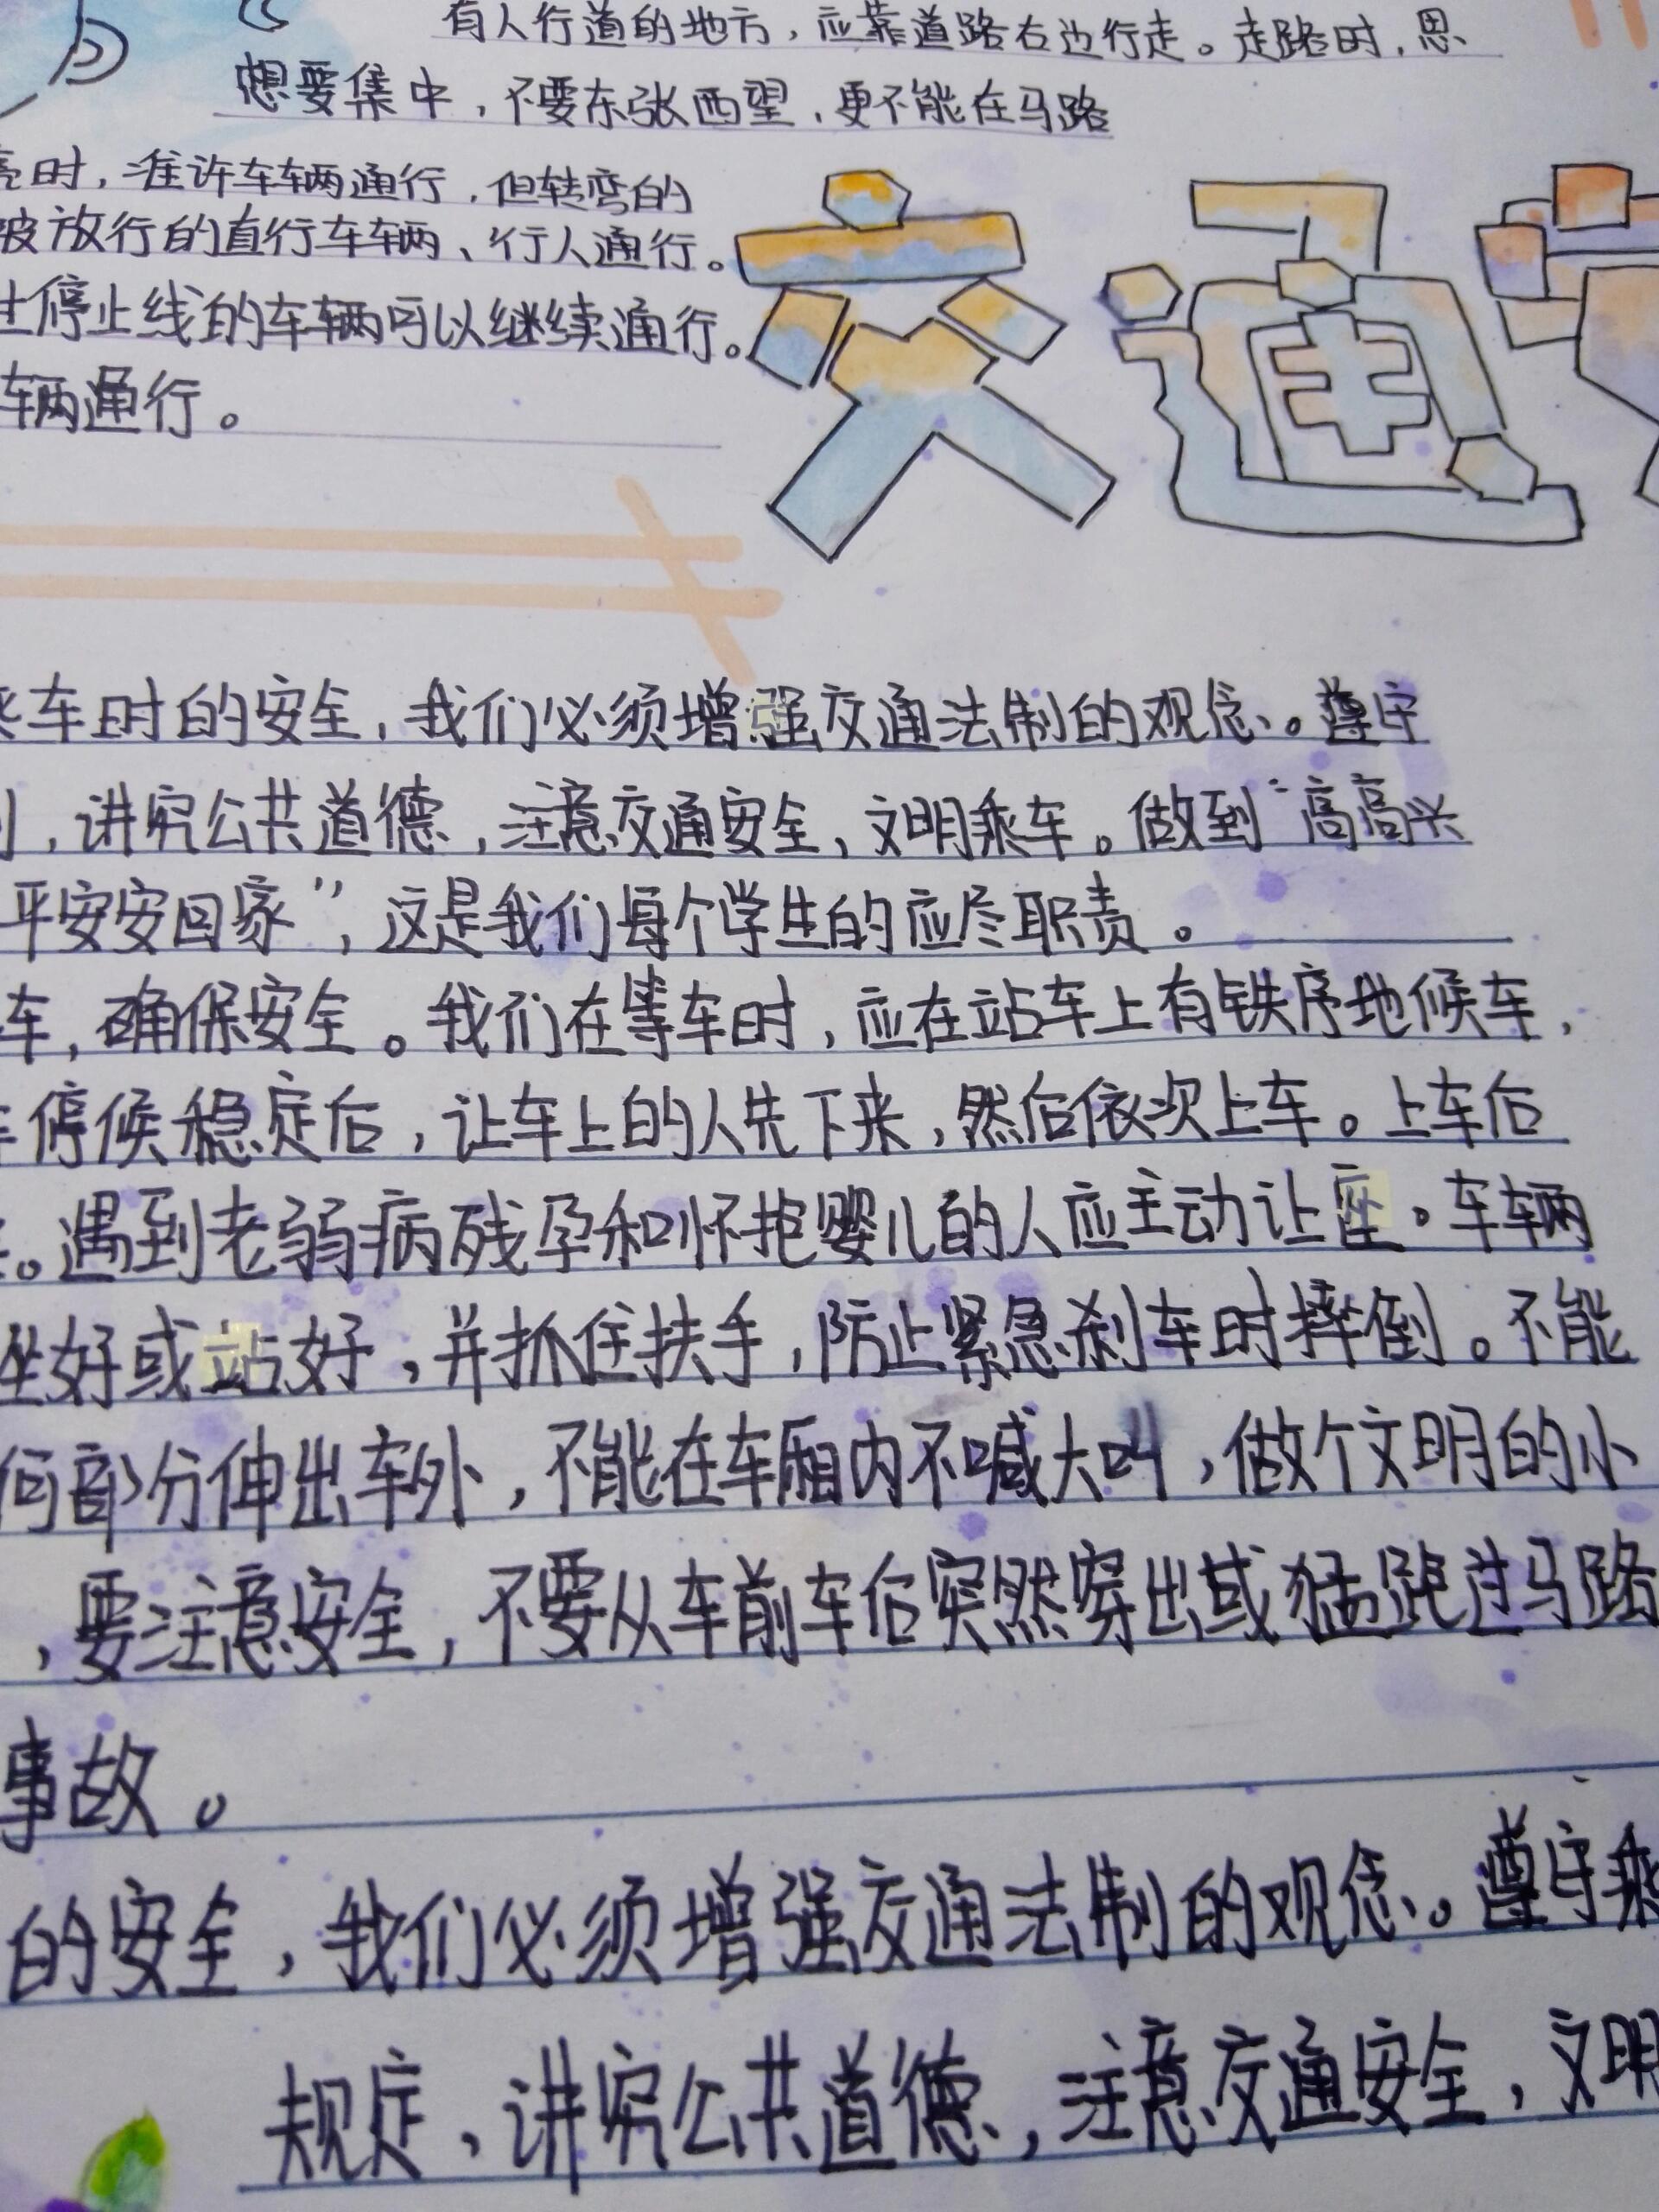 有人行道的地方，应靠道路右边行走。走路时，思
想要集中，不要东张西望，更不能在马路
亮时，准许车辆通行，但转弯的
被放行的直行车辆、行人通行。
停止线的车辆可以继续通行。
车辆通行。
交通
乘车时的安全，我们必须增强交通法制的观念。遵守
，讲究公共道德，注意交通安全，文明乘车。做到“高高兴
平安安回家”，这是我们每个学生的应尽职责。
车，确保安全。我们在等车时，应在站车上有铁序地候车，
停候稳定后，让车上的人先下来，然后依次上车。上车后
。遇到老弱病残孕和怀抱婴儿的人应主动让座。车辆
坐好或站好，并抓住扶手，防止紧急刹车时摔倒。不能
何部分伸出车外，不能在车厢内不喊大叫，做个文明的小
，要注意安全，不要从车前车后突然穿出或猛跑过马路
事故。
的安全，我们必须增强交通法制的观念。遵守乘
规定，讲究公共道德，注意交通安全，文明